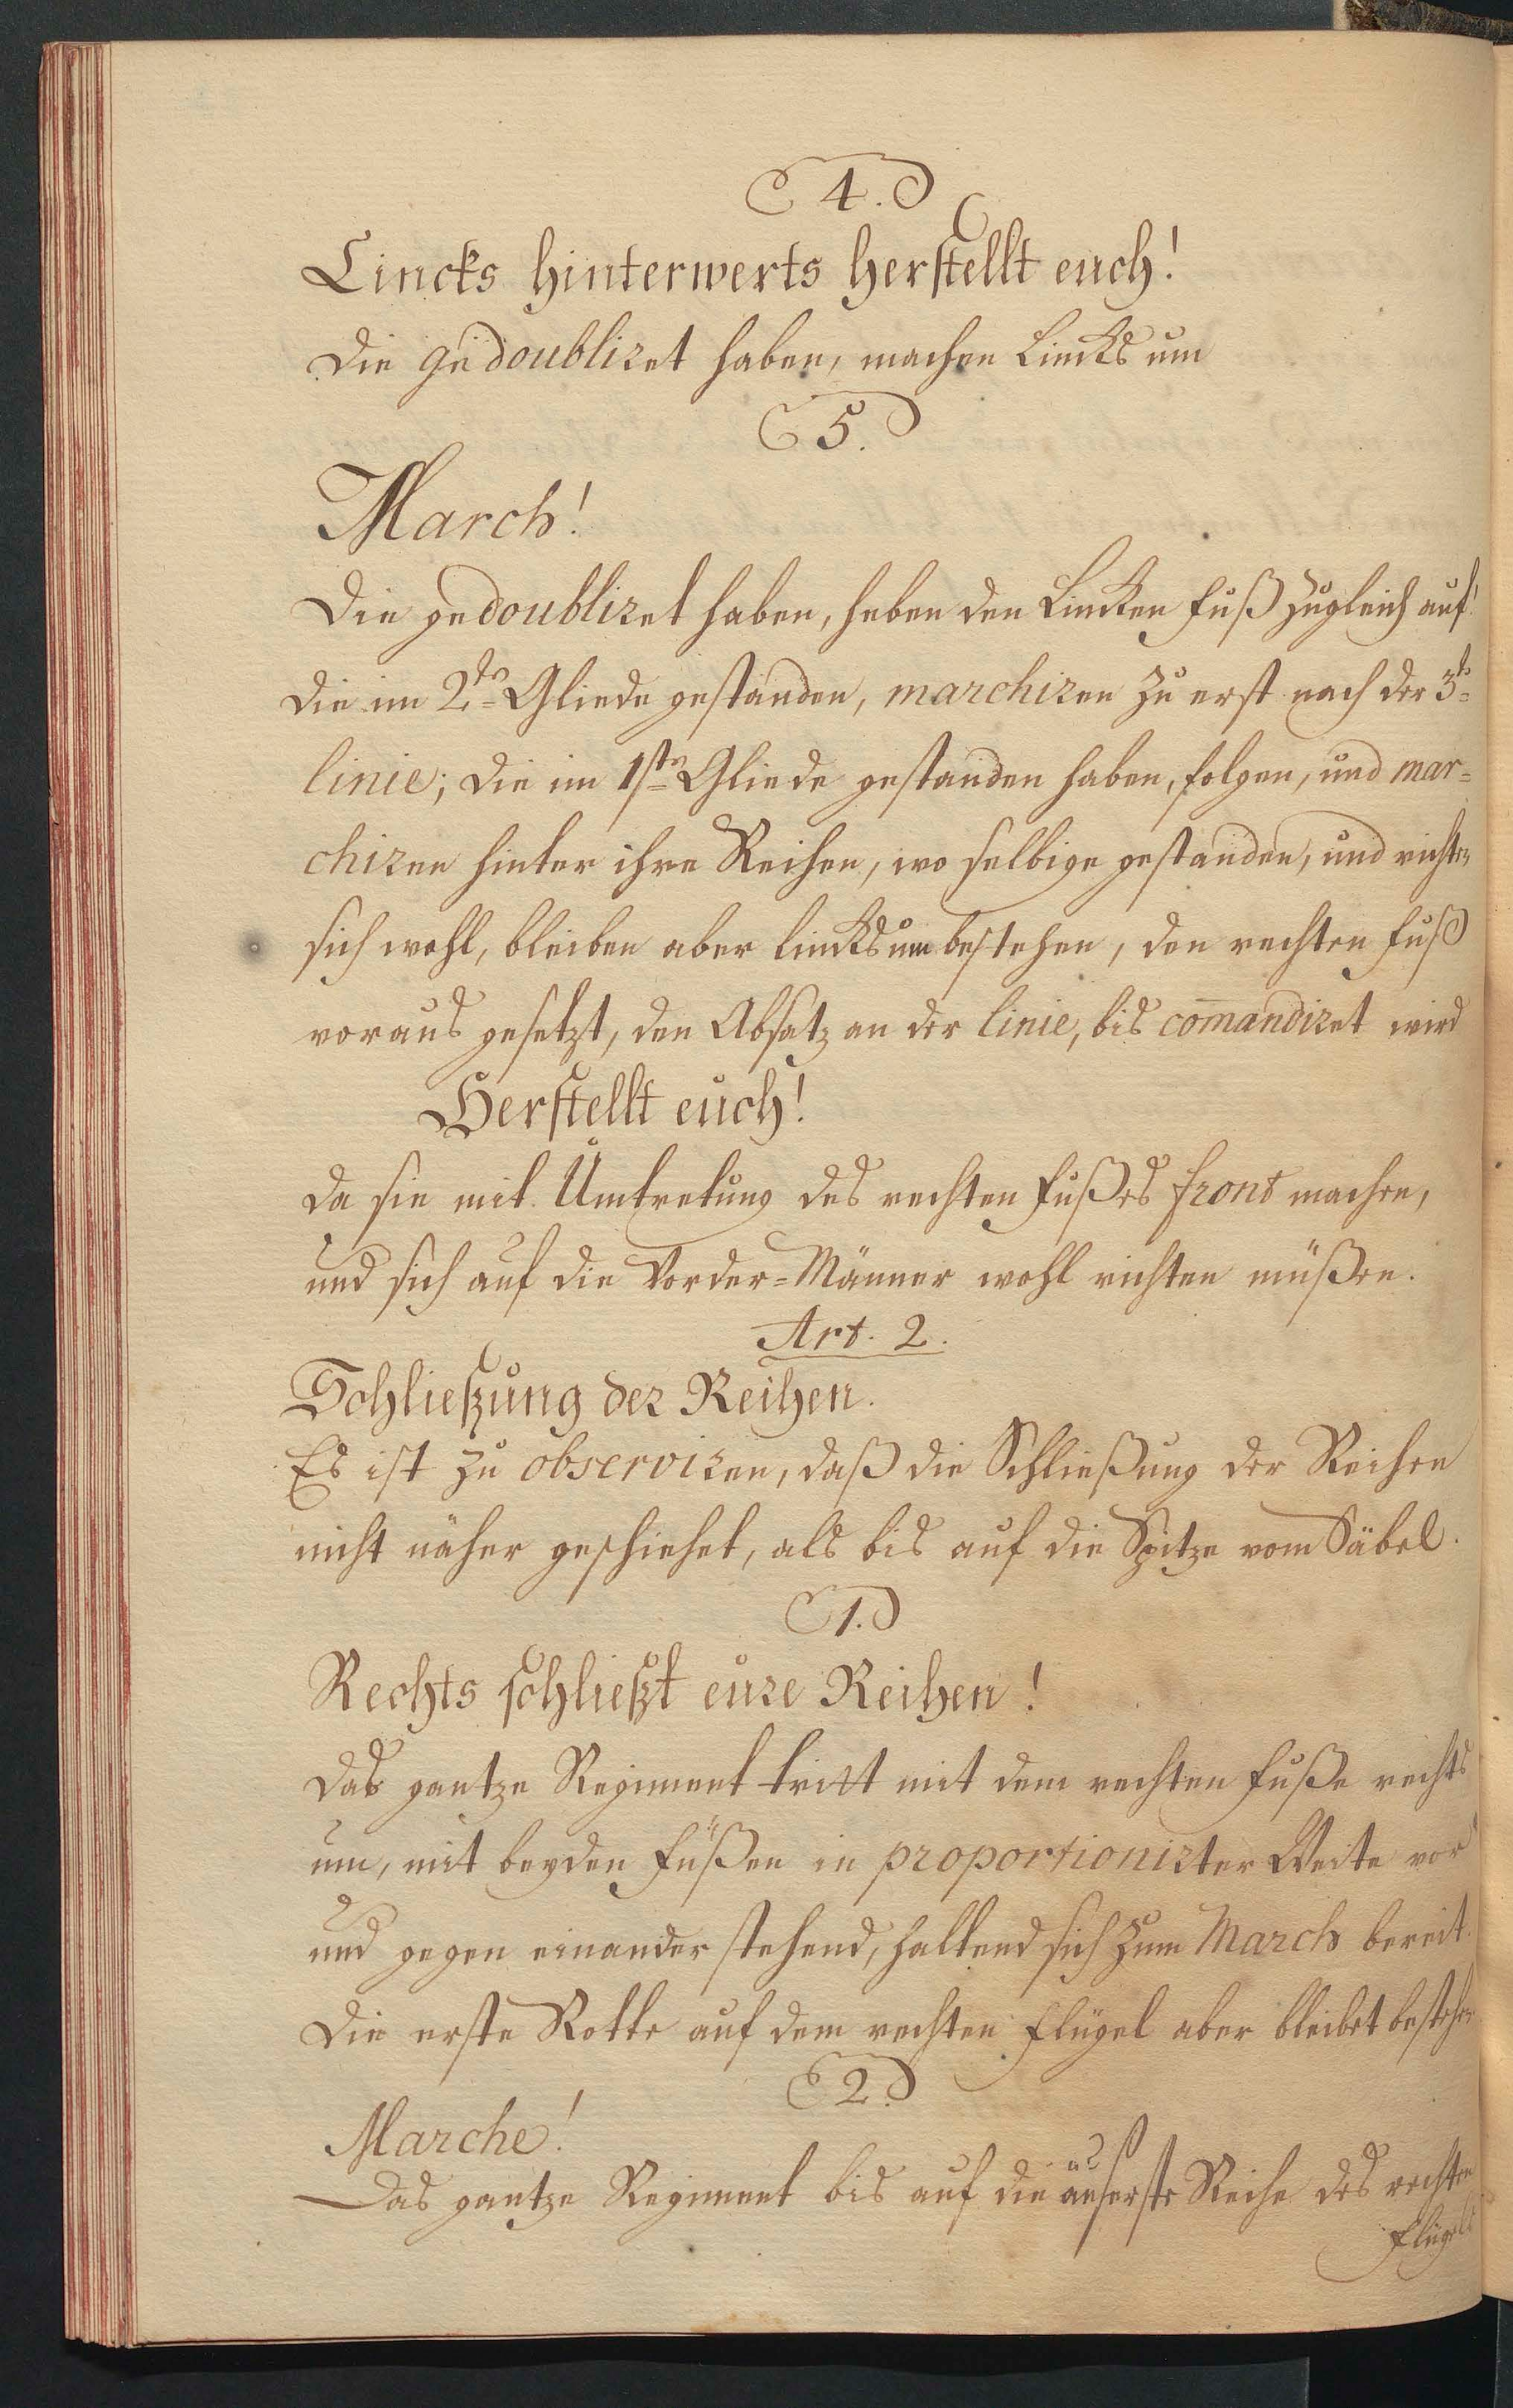 4.
Lincks hinterwerts herstellt euch!
Die gedoubliret haben, machen Lincks um
5.
March!
Die gedoubliret haben, heben den Lincken Fuß zugleich auf!
die im 2ten Gliede gestanden, marchiren zu erst nach der 3ten
linie; die im 1sten Gliede gestanden haben, folgen, und mar=
chiren hinter ihre Reihen, wo selbige gestanden, und richten
sich wohl, bleiben aber lincksum bestehen, den rechten Fuß
voraus gesetzt, den Absatz an der linie, bis com̄andiret wird
Herstellt euch!
da sie mit Umtretung des rechten Fußes front machen,
und sich auf die Vorder=Männer wohl richten müßen.
Art. 2.
Schließung der Reihen.
Es ist zu observiren, daß die Schließung der Reihen
nicht näher geschiehet, als bis auf die Spitze vom Säbel.
1.
Rechts schließt eure Reihen!
das gantze Regiment tritt mit dem rechten Fuße rechts
um, mit beyden Füßen in proportionirter Weite vor
und gegen einander stehend, haltend sich zum March bereit.
Die erste Rotte auf dem rechten Flügel aber bleibet bestehen
2.
Marche!
Das gantze Regiment bis auf die äuserste Reihe des rechten
Flügels